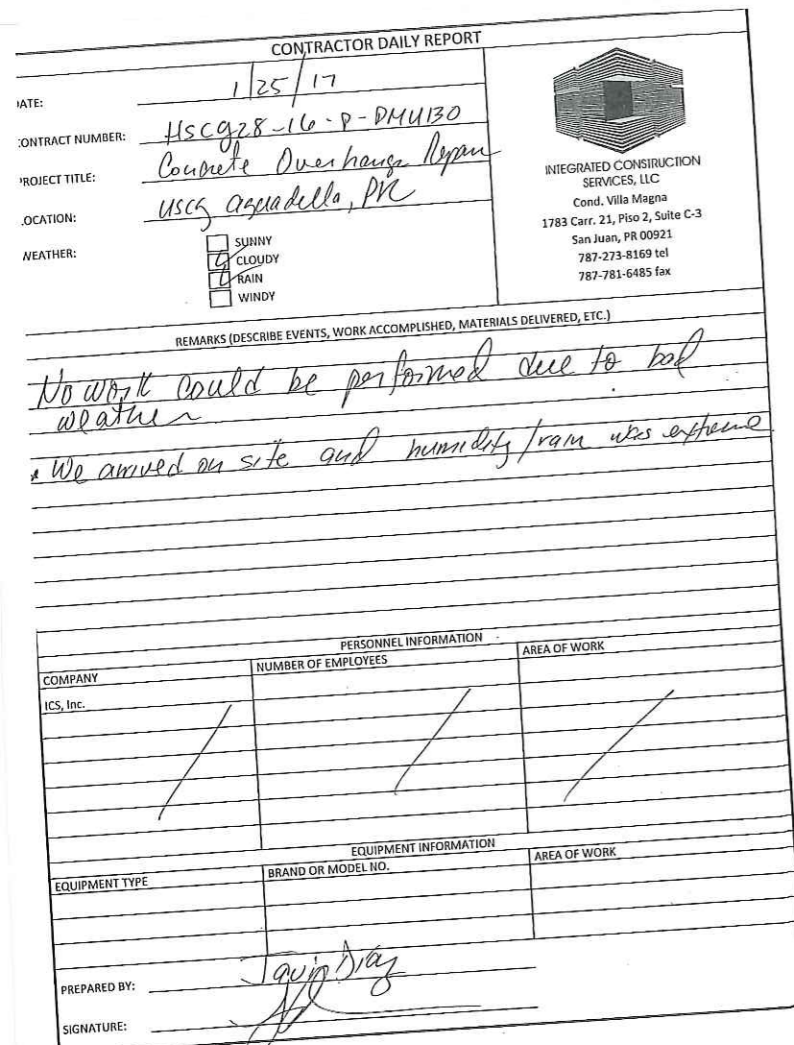 CONTRACTOR DAILY REPORT
ATE: 1/25/17
CONTRACT NUMBER: HSCG28-16-P-PMU130
PROJECT TITLE: Concrete Overhange Repair
LOCATION: USCG aguadella, PR
WEATHER:
SUNNY
CLOUDY
RAIN
WINDY
INTEGRATED CONSTRUCTION
SERVICES, LLC
Cond. Villa Magna
1783 Carr. 21, Piso 2, Suite C-3
San Juan, PR 00921
787-273-8169 tel
787-781-6485 fax
REMARKS (DESCRIBE EVENTS, WORK ACCOMPLISHED, MATERIALS DELIVERED, ETC.)
No work could be performed due to bad
weather
• We arrived on site and humidity/rain was extreme
PERSONNEL INFORMATION
COMPANY NUMBER OF EMPLOYEES AREA OF WORK
ICS, Inc.
EQUIPMENT INFORMATION
EQUIPMENT TYPE BRAND OR MODEL NO. AREA OF WORK
PREPARED BY: Javier Diaz
SIGNATURE: